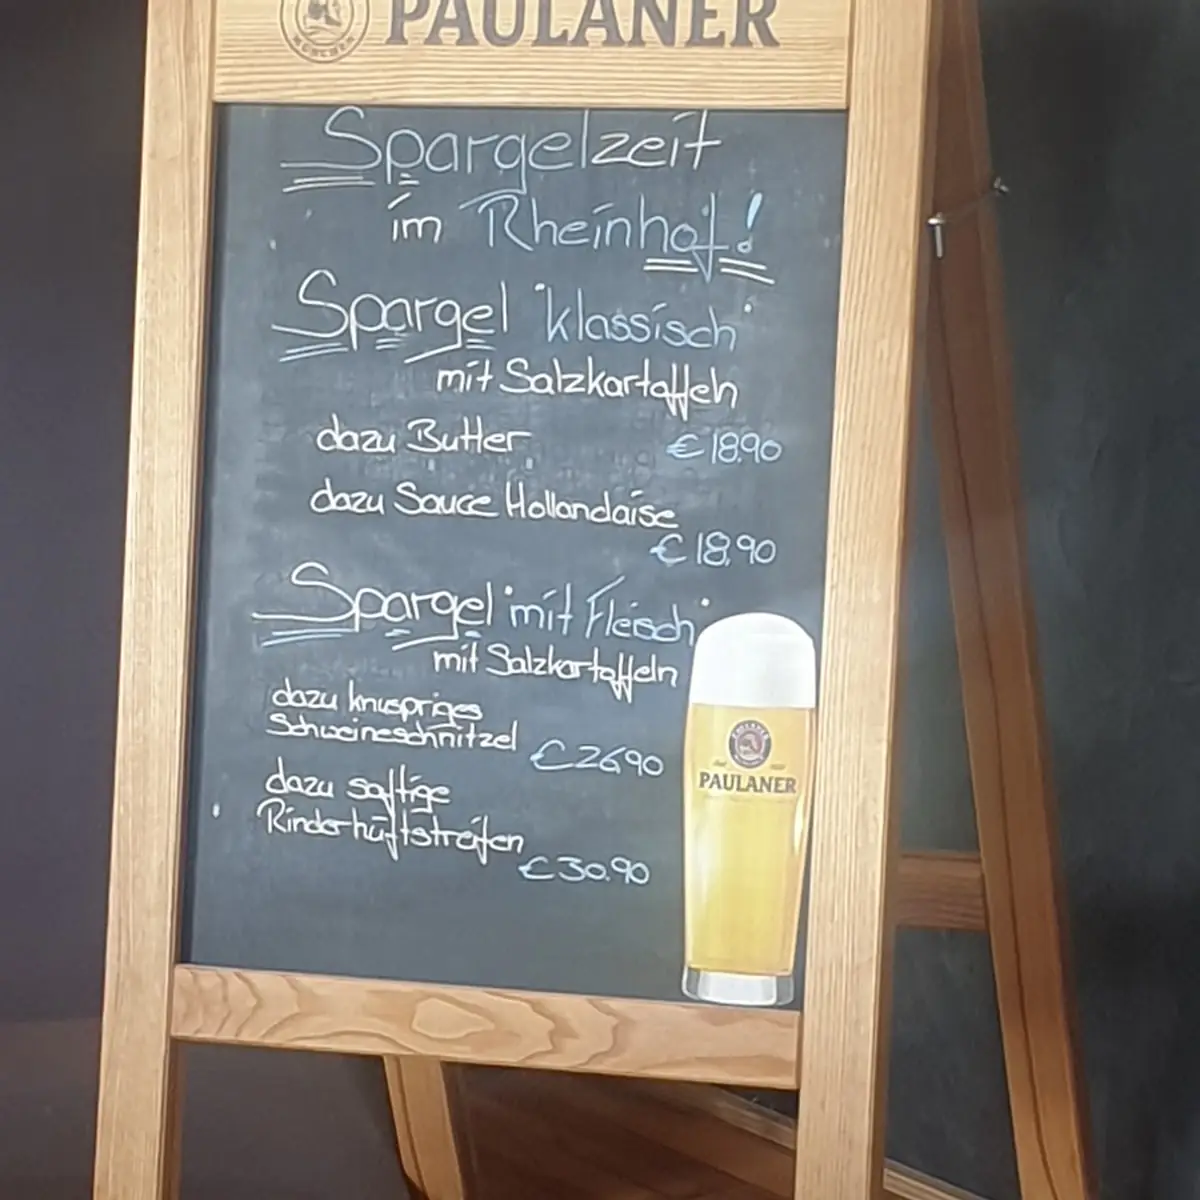 PAULANER
MÜNCHEN
Spargelzeit
im Rheinhof!
Spargel "klassisch"
mit Salzkartoffeln
dazu Butter € 18.90
dazu Sauce Hollandaise
€ 18,90
Spargel "mit Fleisch"
mit Salzkartoffeln
dazu knuspriges
Schweineschnitzel € 26,90
dazu saftige
Rinderhüftstreifen
€ 30.90
PAULANER